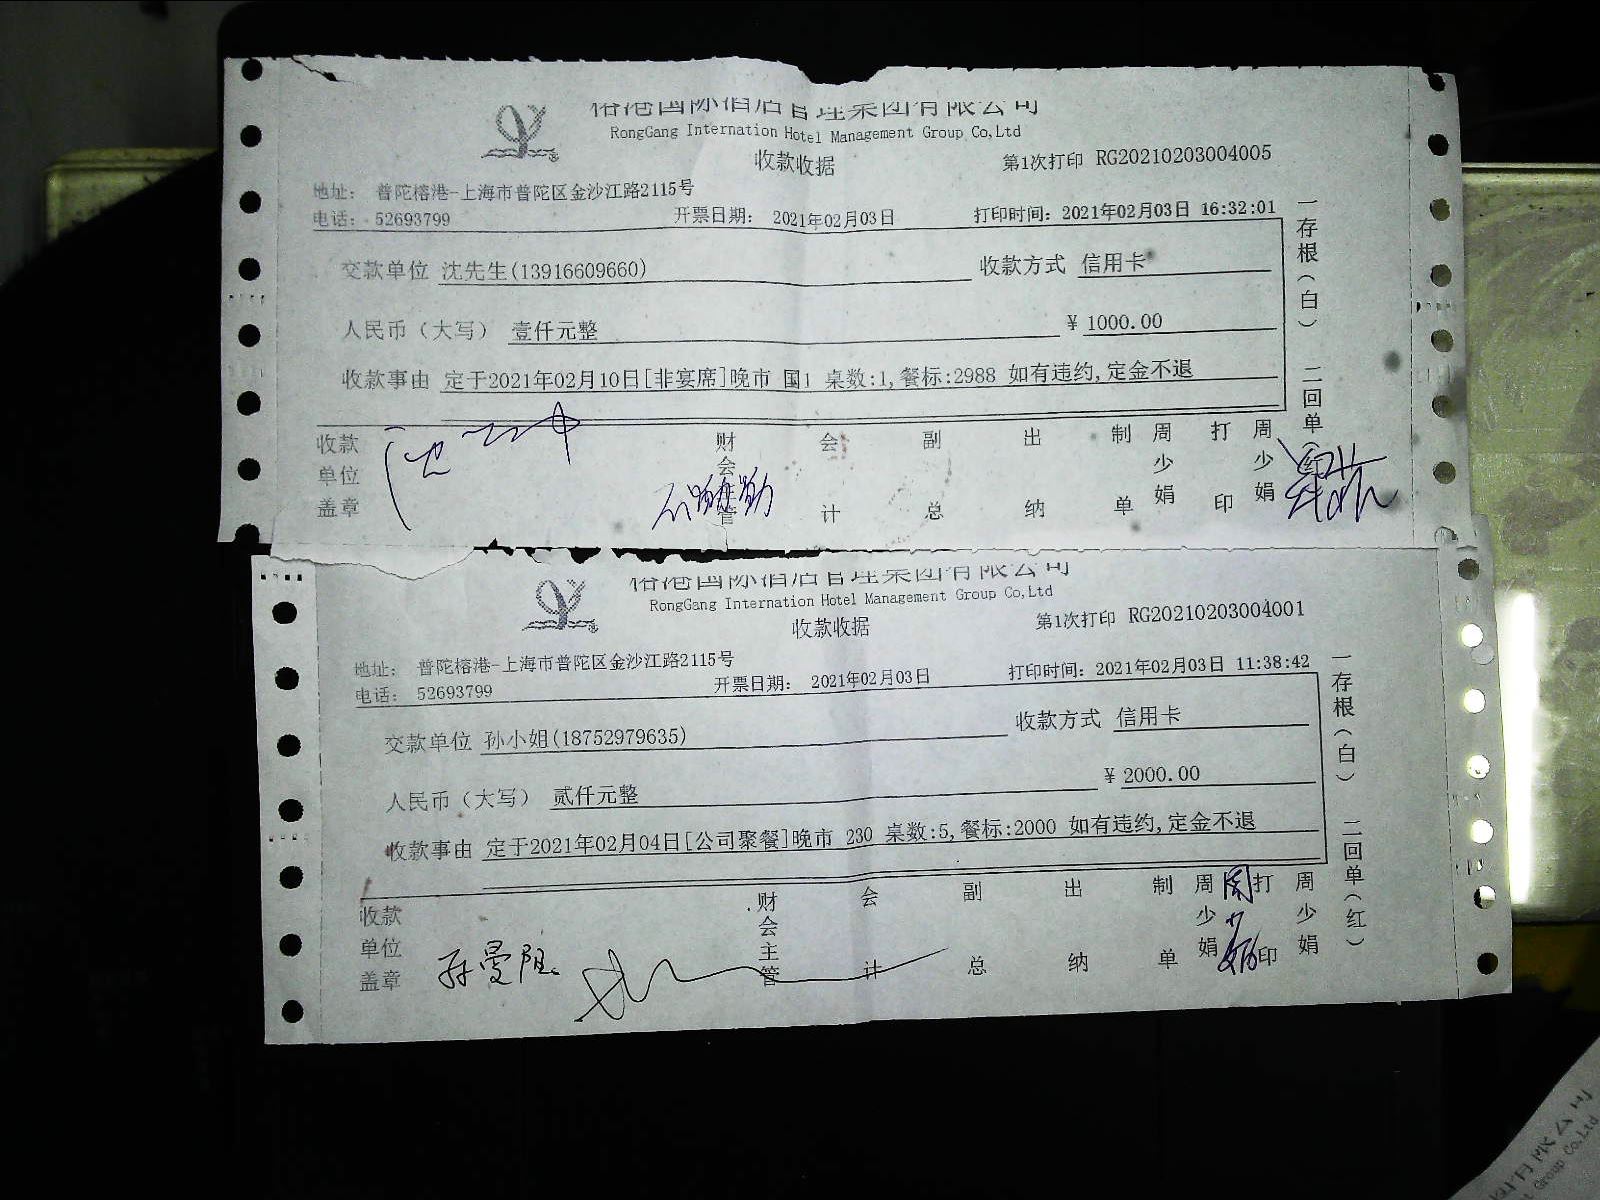 榕港国际酒店管理集团有限公司
RongGang Internation Hotel Management Group Co,Ltd
收款收据
第1次打印 RG20210203004005
地址: 普陀榕港-上海市普陀区金沙江路2115号
电话: 52693799 开票日期: 2021年02月03日 打印时间: 2021年02月03日 16:32:01
交款单位 沈先生(13916609660) 收款方式 信用卡
人民币（大写） 壹仟元整 ¥ 1000.00
收款事由 定于2021年02月10日[非宴席]晚市 国1 桌数:1,餐标:2988 如有违约,定金不退
收款单位盖章 财会主管 会计 副总 出纳 制单 周少娟 打印 周少娟
一存根（白） 二回单（红
榕港国际酒店管理集团有限公司
RongGang Internation Hotel Management Group Co,Ltd
收款收据
第1次打印 RG20210203004001
地址: 普陀榕港-上海市普陀区金沙江路2115号
电话: 52693799 开票日期: 2021年02月03日 打印时间: 2021年02月03日 11:38:42
交款单位 孙小姐(18752979635) 收款方式 信用卡
人民币（大写） 贰仟元整 ¥ 2000.00
收款事由 定于2021年02月04日[公司聚餐]晚市 230 桌数:5,餐标:2000 如有违约,定金不退
收款单位盖章 财会主管 会计 副总 出纳 制单 周少娟 打印 周少娟
一存根（白） 二回单（红）
限公司
Group Co,Ltd